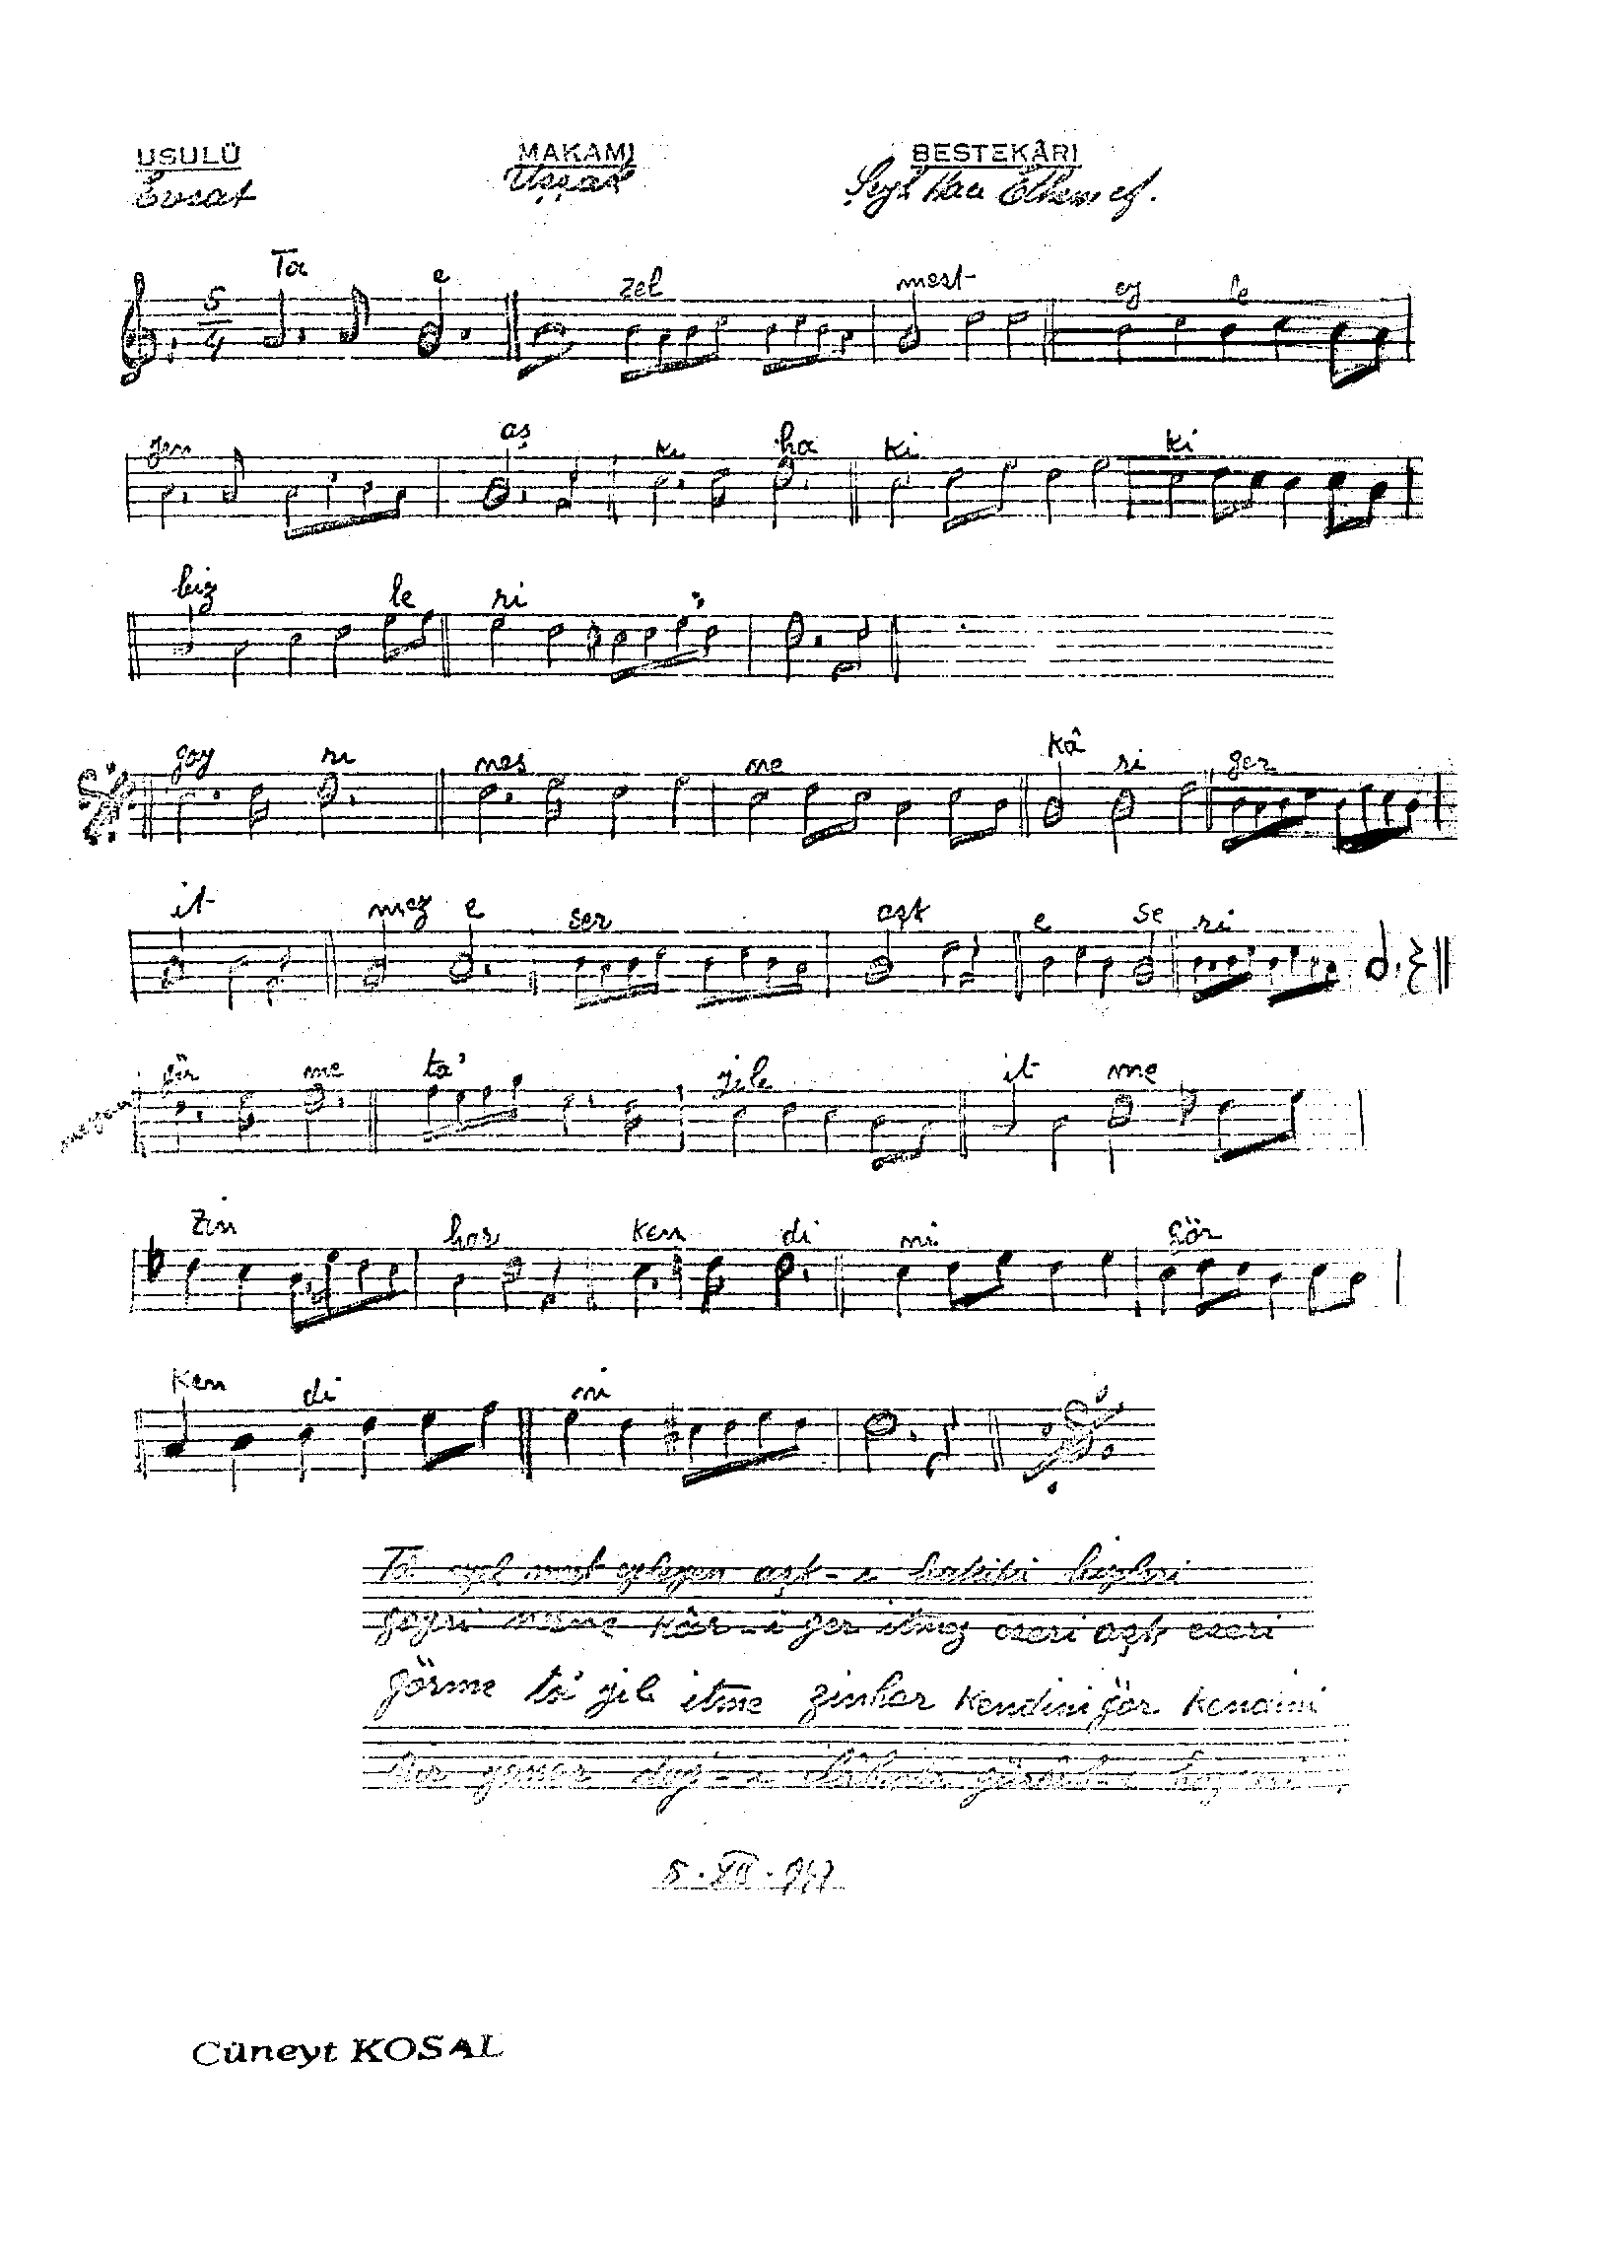 USULÜ MAKAMI BESTEKÂRI
Evsat Uşşak Şeyh Ethem ef.
5
4
Ta e zel mest ey le
yen aş kı ha ki ki
biz le ri
gay ri nes ne kâ ri ger
it mez e ser aşk e se ri
meyan gör me ta' yile it me
zin har ken di ni gör
Ken di ni
Ta ezel mest eyleyen aşk-ı hakiki bizleri
gayri nesne kâr-i ger itmez eseri aşk eseri
görme ta' yile itme zinhar Kendini gör kendini
5.XII.947
Cüneyt KOSAL